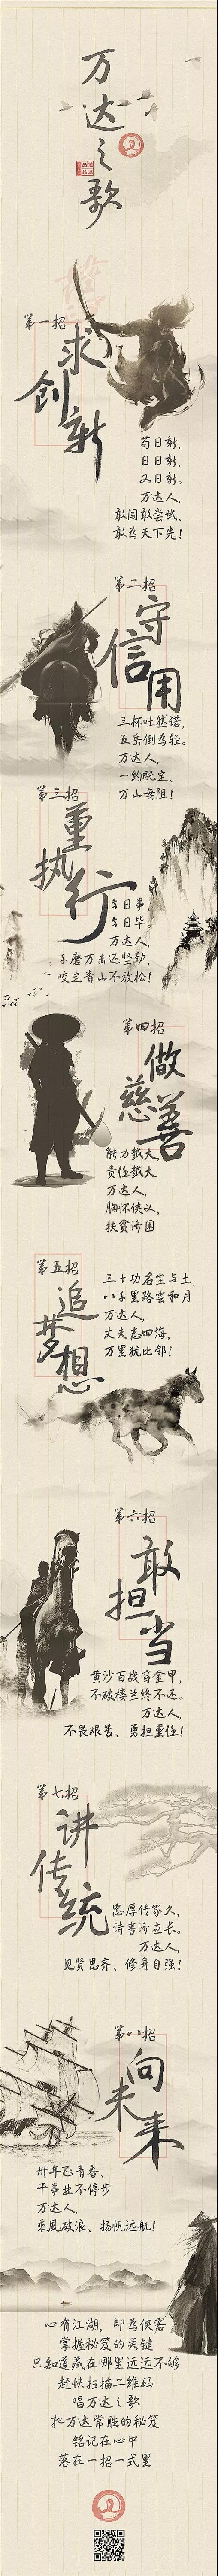 万达之歌
第一招
求创新
苟日新,
日日新,
又日新。
万达人,
敢闯敢尝试、
敢为天下先!
第二招
守信用
三杯吐然诺,
五岳倒为轻。
万达人,
一约既定、
万山无阻!
第三招
重执行
今日事
今日毕。
万达人,
千磨万击还坚劲,
咬定青山不放松!
第四招
做慈善
能力越大,
责任越大
万达人,
胸怀侠义,
扶贫济困
第五招
追梦想
三十功名尘与土,
八千里路云和月
万达人,
丈夫志四海,
万里犹比邻!
第六招
敢担当
黄沙百战穿金甲,
不破楼兰终不还。
万达人,
不畏艰苦、勇担重任!
第七招
讲传统
忠厚传家久,
诗书济世长。
万达人,
见贤思齐、修身自强!
第八招
向未来
卅年正青春、
干事业不停步
万达人,
乘風破浪、扬帆远航!
心有江湖,即为侠客
掌握秘笈的关键
只知道藏在哪里远远不够
赶快扫描二维码
唱万达之歌
把万达常胜的秘笈
铭记在心中
落在一招一式里